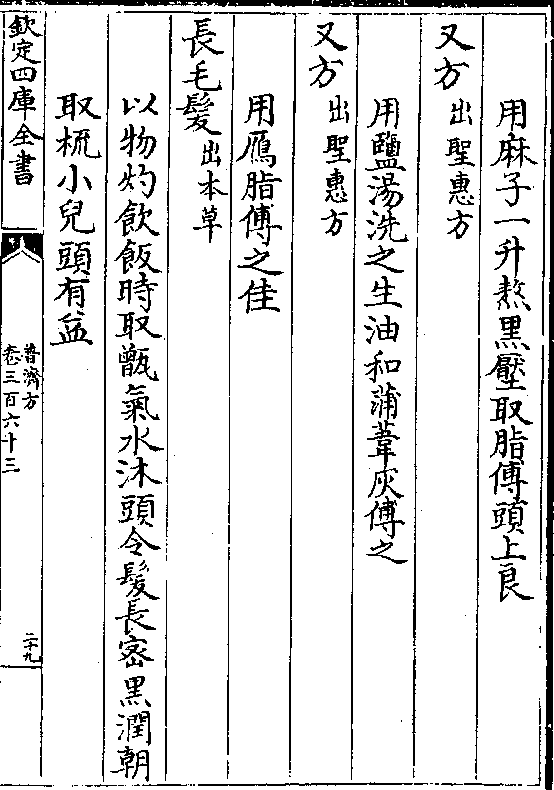 用麻子一升熬黑壓取脂傅頭上良
又方出聖惠方
用鹽湯洗之生油和蒲葦灰傅之
又方出聖惠方
用鴈脂傅之佳
長毛髪出本草
以物灼飲飯時取甑氣水沐頭令髪長密黒潤朝
取梳小兒頭有益
欽定四庫全書
普濟方
卷三百六十三
二十九